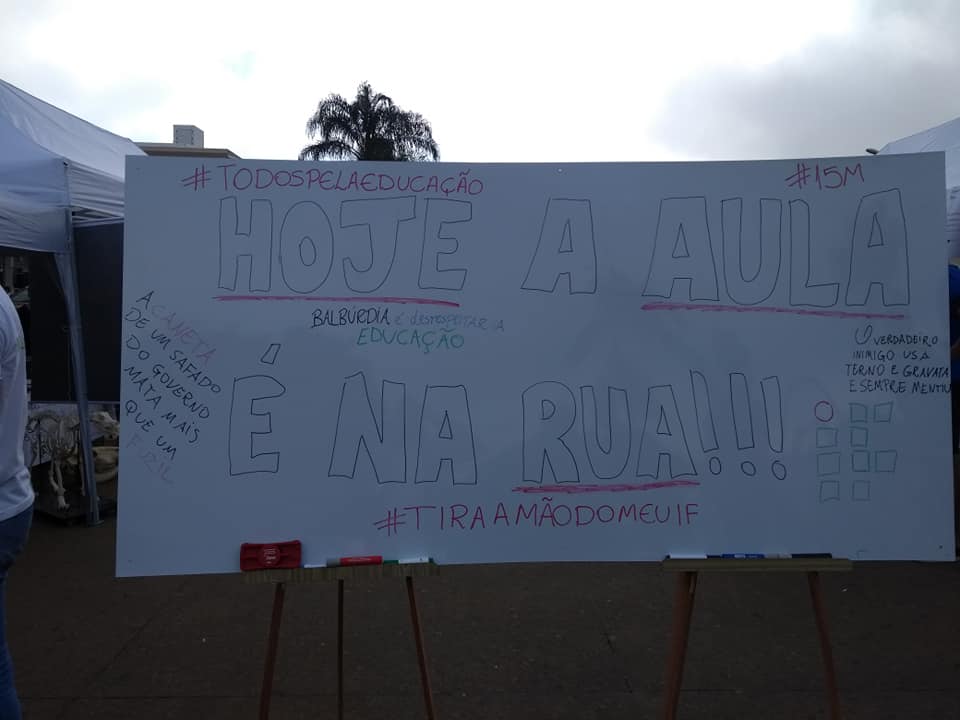 #TODOSPELAEDUCAÇÃO
#15M
HOJE A AULA
BALBÚRDIA é desrespeitar a
EDUCAÇÃO
A CANETA
DE UM SAFADO
DO GOVERNO
MATA MAIS
QUE UM
FUZIL
O VERDADEIRO
INIMIGO USA
TERNO E GRAVATA
E SEMPRE MENTIU
É NA RUA!!!
#TIRAAMÃODOMEUIF